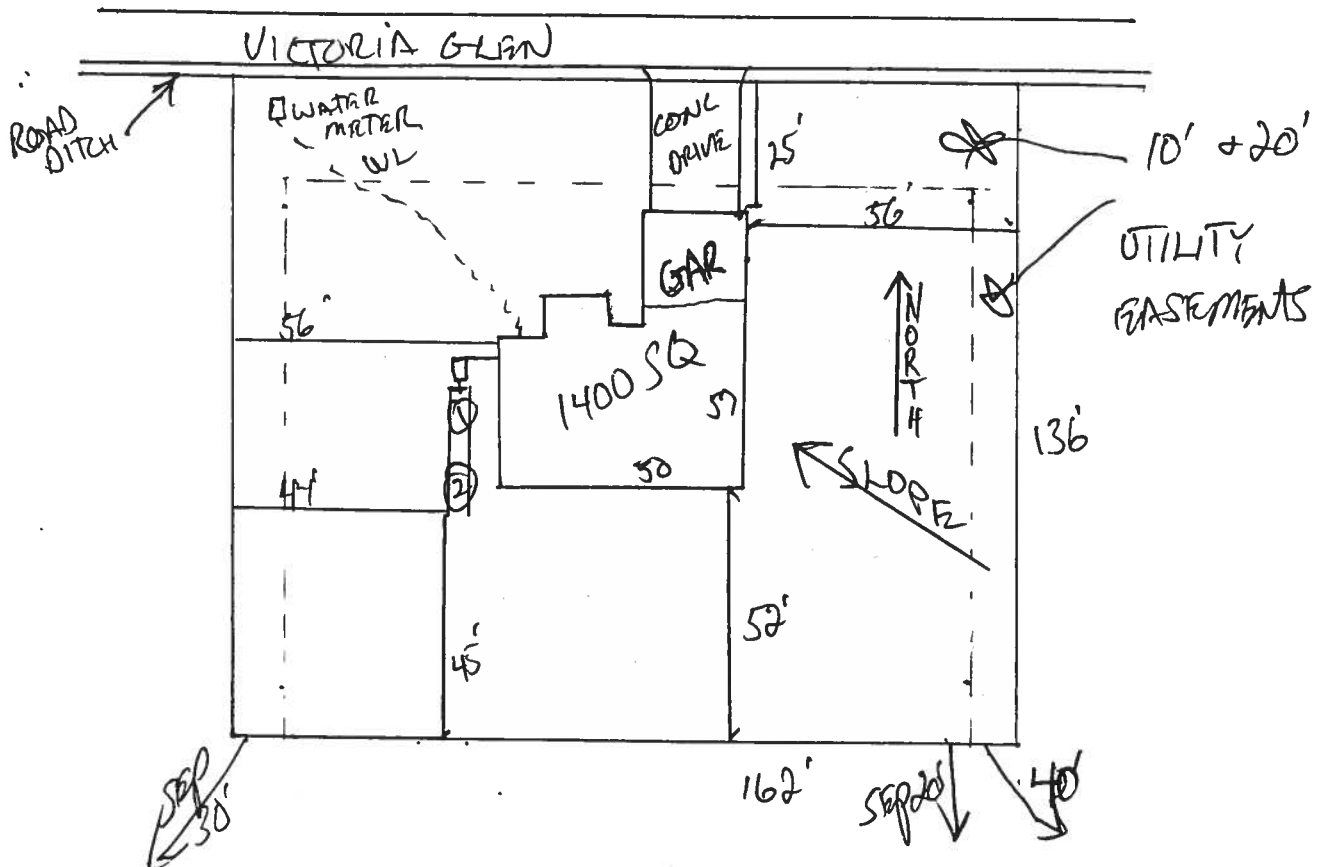 VICTORIA GLEN
ROAD
DITCH
WATER
METER
WL
CONC
DRIVE
25'
10' & 20'
UTILITY
EASEMENTS
56'
GAR
NORTH
56'
1400 SQ
50
136'
SLOPE
1
2
44'
45'
52'
162'
SEP
30'
SEP 20'
40'